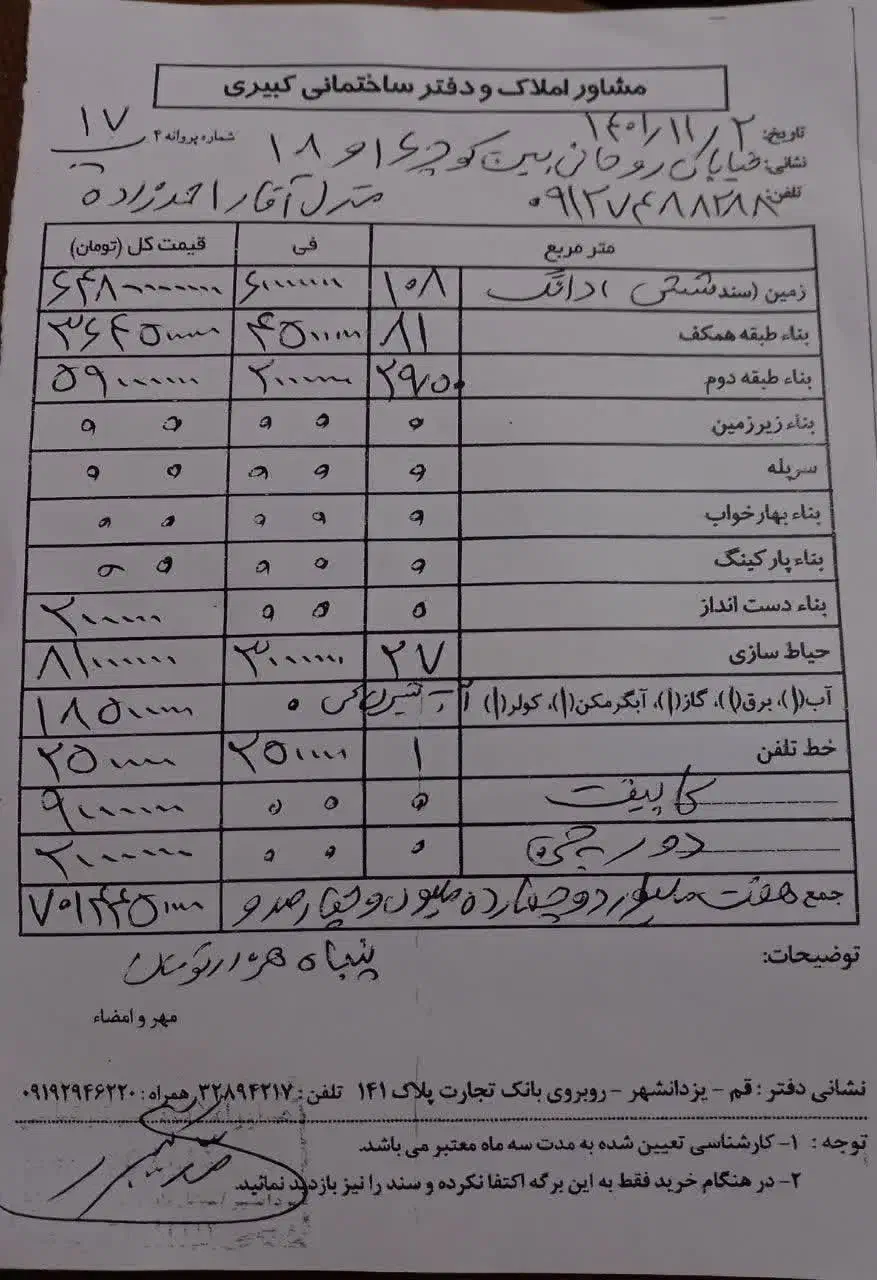 مشاور املاک و دفتر ساختمانی کبیری
تاریخ: ۱۴۰۱/۱۱/۲ شماره پروانه ۴ ۱۷
نشانی: خیابان روحانی بین کوچه ۱۶ و ۱۸
تلفن: منزل آقای احمدزاده
متر مربع فی قیمت کل (تومان)
زمین (سند شش) دانگ ۱۰۸ ۶۰۰۰۰۰۰۰ ۶۴۸۰۰۰۰۰۰۰
بناء طبقه همکف ۸۱ ۴۵۰۰۰۰۰ ۳۶۴۵۰۰۰۰۰
بناء طبقه دوم ۲۹/۵۰ ۲۰۰۰۰۰۰ ۵۹۰۰۰۰۰۰
بناء زیرزمین ۰ ۰ ۰ ۰ ۰
سرپله ۰ ۰ ۰ ۰ ۰
بناء بهارخواب ۰ ۰ ۰ ۰ ۰
بناء پارکینگ ۰ ۰ ۰ ۰ ۰
بناء دست انداز ۰ ۰ ۰ ۲۰۰۰۰۰۰
حیاط سازی ۲۷ ۳۰۰۰۰۰۰ ۸۱۰۰۰۰۰۰
آب(۱)، برق(۱)، گاز(۱)، آبگرمکن(۱)، کولر(۱) ۰ ۱۸۵۰۰۰۰۰
خط تلفن ۱ ۲۵۰۰۰۰ ۲۵۰۰۰۰
کابینت ۰ ۰ ۰ ۹۰۰۰۰۰۰
دور چینی ۰ ۰ ۰ ۲۰۰۰۰۰۰
جمع هفت میلیارد و چهارده میلیون و چهارصد و ۷۰۱۴۴۵۰۰۰۰
توضیحات: پنجاه هزار تومان
مهر و امضاء
نشانی دفتر : قم - یزدانشهر - روبروی بانک تجارت پلاک ۱۴۱ تلفن : ۳۲۸۹۴۲۱۷ همراه : ۰۹۱۹۲۹۴۶۲۲۰
توجه : ۱- کارشناسی تعیین شده به مدت سه ماه معتبر می باشد.
۲- در هنگام خرید فقط به این برگه اکتفا نکرده و سند را نیز بازدید نمائید.